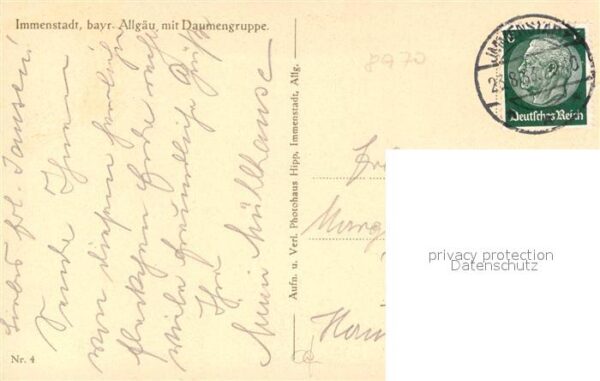 Immenstadt, bayr. Allgäu, mit Daumengruppe.
8970
IMMENSTADT
Deutsches Reich
Liebes Frl. Jansen!
Sende Ihnen
von diesem herrlichen
Fleckchen Erde recht
viele freundliche Grüße
Ihr
Mühlhause
Aufn. u. Verl. Photohaus Hipp, Immenstadt, Allg.
Nr. 4
privacy protection
Datenschutz